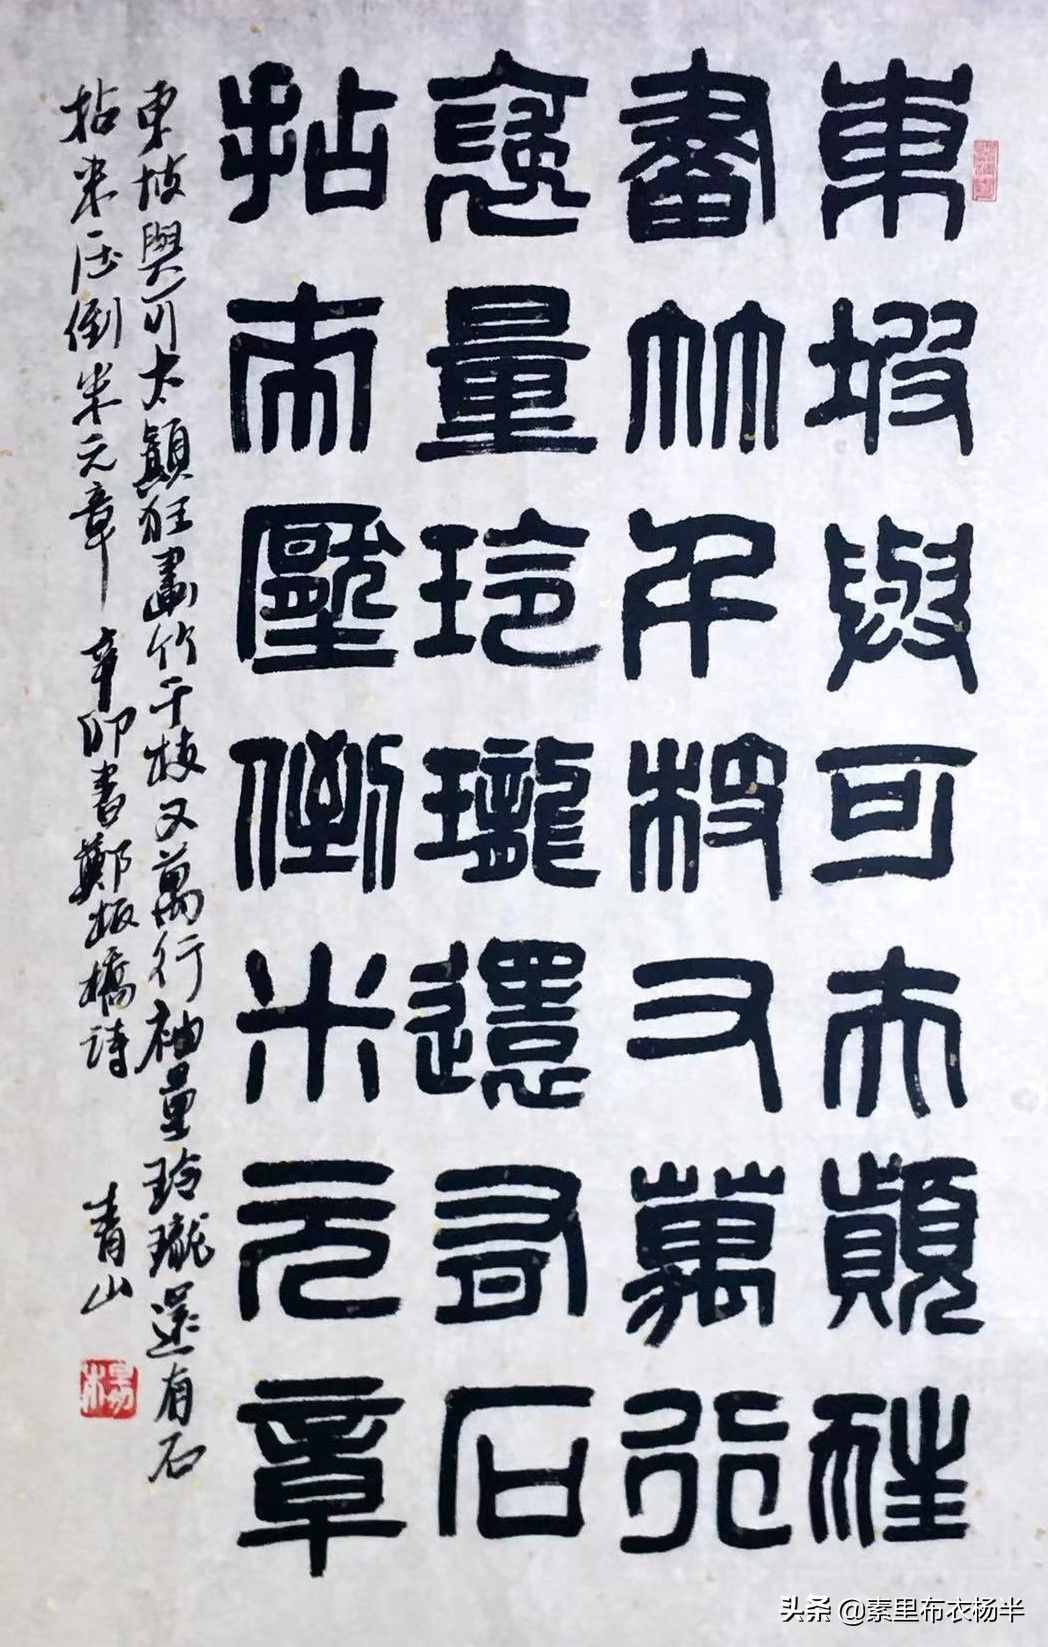 東坡與可太顛狂
畫竹千枝又萬行
褎量玲瓏還有石
拈來壓倒米元章
東坡與可太顛狂畫竹千枝又萬行袖量玲瓏還有石
拈来压倒米元章 辛卯書鄭板橋詩 青山
头条 @素里布衣杨半